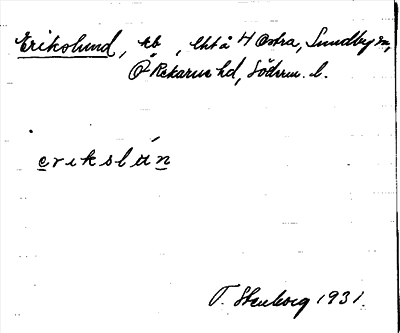 Erikslund, tb, Ökt å H Östra, Sundby sn,
Ö Rekarne hd, Söderm. l.
erikslún
T. Stenborg 1931.